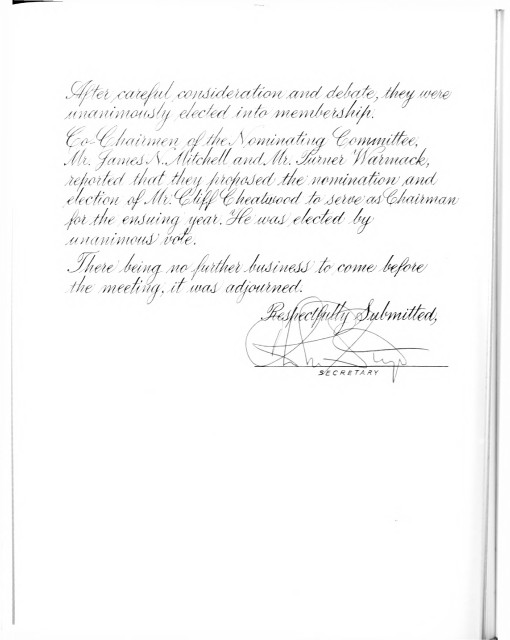 After careful consideration and debate, they were
unanimously elected into membership.
Co-Chairmen of the Nominating Committee,
Mr. James N. Mitchell and Mr. Turner Warmack,
reported that they proposed the nomination and
election of Mr. Cliff Cheatwood to serve as Chairman
for the ensuing year. He was elected by
unanimous vote.
There being no further business to come before
the meeting, it was adjourned.
Respectfully Submitted,
SECRETARY